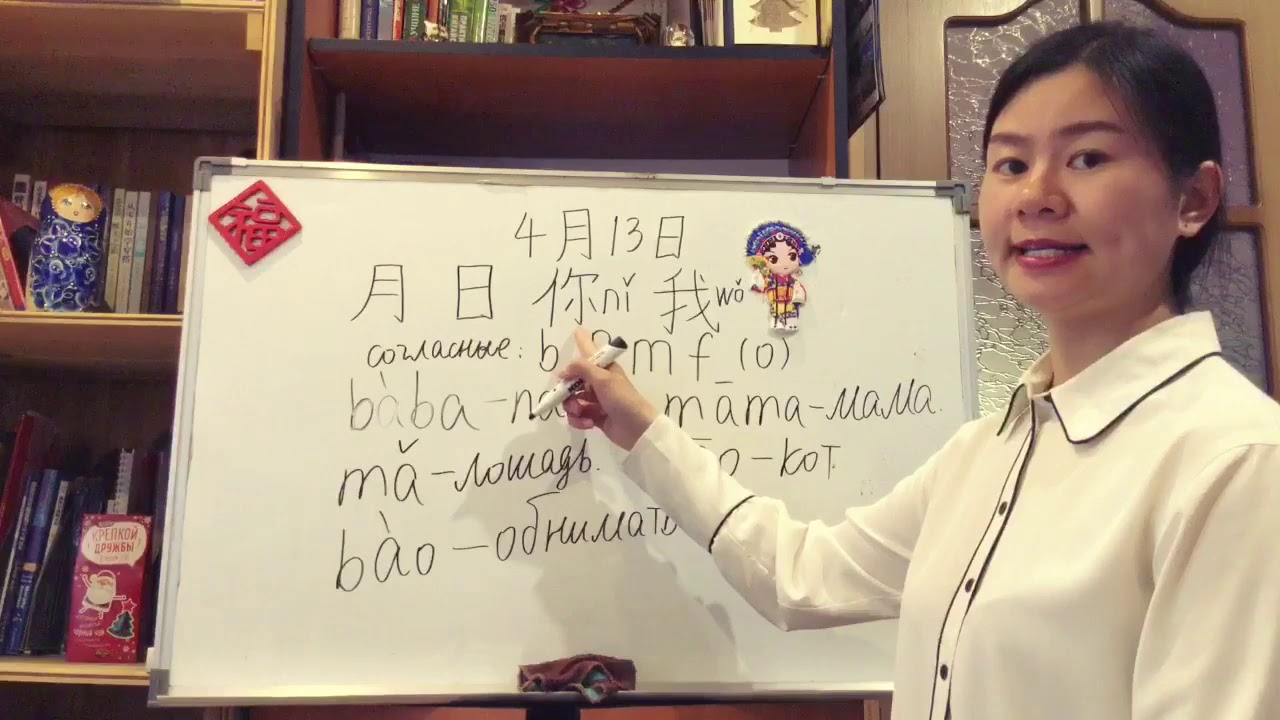 福
4月13日
月 日 你nǐ 我wǒ
согласные: b m f (o)
bàba - māma - мама.
mǎ - лошадь. - кот.
bào - обнимать
КРЕПКОЙ
ДРУЖБЫ